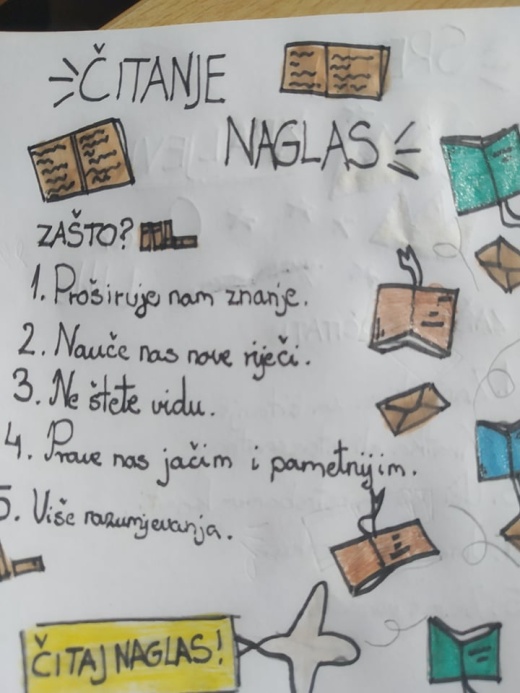 ČITANJE
NAGLAS
ZAŠTO?
1. Proširuje nam znanje.
2. Nauče nas nove riječi.
3. Ne štete vidu.
4. Prave nas jačim i pametnijim.
5. Više razumijevanja.
ČITAJ NAGLAS!